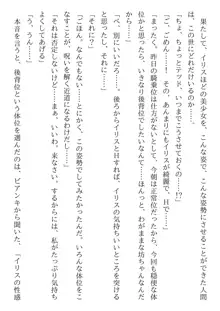 果たして、イリスほどの美少女を、こんな姿で、こんな姿勢にさせることができた人間
は、この世にどれだけいるのだろうか。
「ちょ、ちょっとテッド、いつまでこうさせておくの……！？」
「ご、ごめん……！　あんまりにもイリスが綺麗で、Hで……」
「まったく、昨日の騎乗位は仕方ないとして、今朝は正常位だったし、今回も穏便な体
位かと思いきや、いきなり後背位だなんて……とんだわがままな坊ちゃんなんだ
から……！？」
「べ、別にいいだろ……。後ろからイリスとHすれば、イリスの気持ちいいところを突ける
と思って。それに……」
「それに……？」
「ごほん、なんでもない。とにかく、この姿勢でしてみたかったんだ。いろんな体位をこ
なすことが、呪いを解く近道になるわけだし……」
「それは否定しないけど……まぁ、いいわ、来なさい。するからには、私がたっぷりと気持
ちよくしてあげる」
「う、うん……」
本音を言うと、後背位という体位を選んだのは、ビアンキから聞いた、「イリスの性感